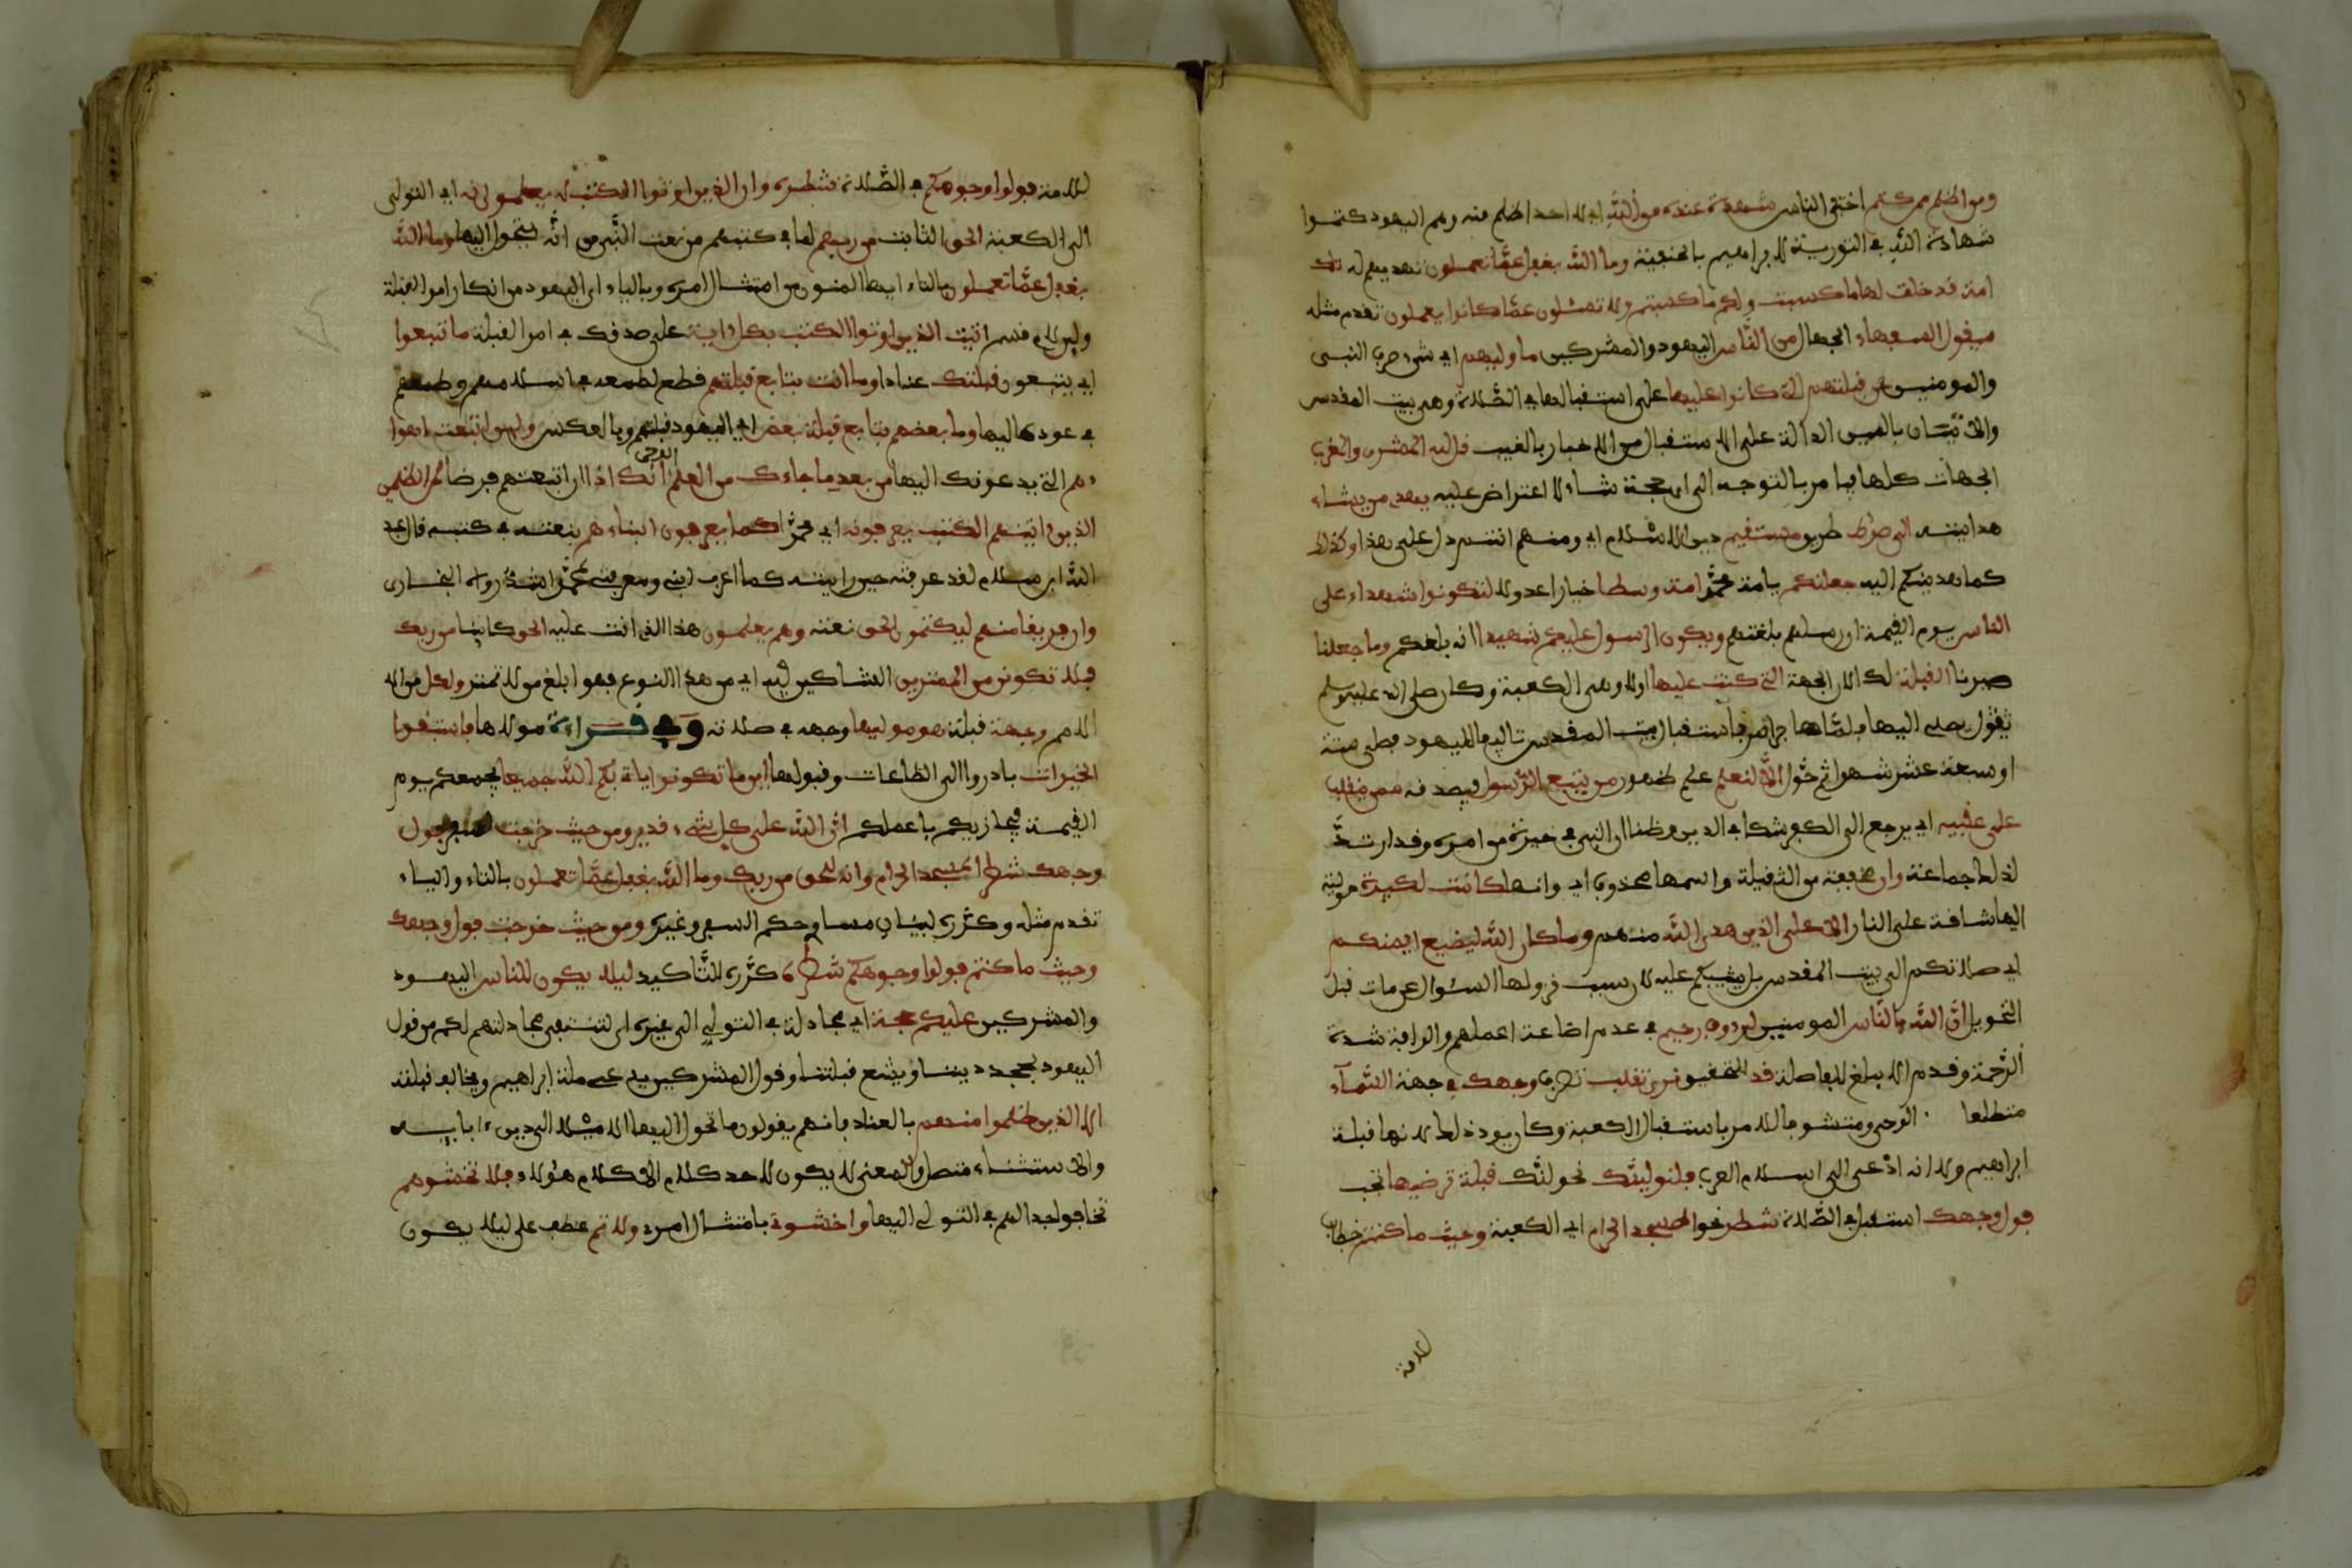 ومن اظلم ممن كتم اخفى الناس شهدة عنده من الله اي لا احد اظلم منه وهم اليهود كتموا
شهادة الله في التورية لابراهيم بالحنيفية وما الله بغفل عما تعملون تهديد لهم تلك
امة قد خلت لها ما كسبت ولكم ما كسبتم ولا تسئلون عما كانوا يعملون تقدم مثله
سيقول السفهاء الجهال من الناس اليهود والمشركين ما وليهم اي شيء صرف النبي
والمومنين عن قبلتهم التي كانوا عليها على استقبالها في الصلاة وهي بيت المقدس
والاتيان بالسين الدالة على الاستقبال من الاخبار بالغيب قل لله المشرق والمغرب
الجهات كلها فيامر بالتوجه الى اي جهة شاء لا اعتراض عليه يهدي من يشاء
هدايته الى صراط طريق مستقيم دين الاسلام اي ومنهم انتم دل على هذا وكذلك
كما هدينكم اليه جعلنكم يا امة محمد امة وسطا خيارا عدولا لتكونوا شهداء على
الناس يوم القيمة ان رسلهم بلغتهم ويكون الرسول عليكم شهيدا انه بلغكم وما جعلنا
صيرنا القبلة لك الان الجهة التي كنت عليها اولا وهي الكعبة وكان صلى الله عليه وسلم
يصلي اليها فلما هاجر امر باستقبال بيت المقدس تالفا لليهود فصلى ستة
او سبعة عشر شهرا ثم حول الا لنعلم علم ظهور من يتبع الرسول فيصدقه ممن ينقلب
على عقبيه اي يرجع الى الكفر شكا في الدين وظنا ان النبي في حيرة من امره وقد ارتد
لذلك جماعة وان مخففة من الثقيلة واسمها محذوف اي وانها كانت لكبيرة التولية
اليها شاقة على الناس الا على الذين هدى الله منهم وما كان الله ليضيع ايمنكم
اي صلاتكم الى بيت المقدس بل يثيبكم عليه لان سبب نزولها السؤال عمن مات قبل
التحويل ان الله بالناس المومنين لرءوف رحيم في عدم اضاعة اعملهم والرافة شدة
الرحمة وقدم الابلغ للفاصلة قد للتحقيق نرى تقلب تصرف وجهك في جهة السماء
متطلعا الوحي ومتشوفا للامر باستقبال الكعبة وكان يود ذلك لانها قبلة
ابراهيم ولانه ادعى الى اسلام العرب فلنولينك نحولنك قبلة ترضيها تحب
فول وجهك استقبل في الصلاة شطر نحو المسجد الحرام اي الكعبة وحيث ما كنتم خطاب
للامة
للامة فولوا وجوهكم في الصلاة شطره وان الذين اوتوا الكتب ليعلمون انه اي التولي
الى الكعبة الحق الثابت من ربهم لما في كتبهم من نعت النبي من انه يتحول اليها وما الله
بغفل عما تعملون بالتاء ايها المومنون من امتثال امره وبالياء اي اليهود من انكار امر القبلة
ولين لام قسم اتيت الذين اوتوا الكتب بكل اية على صدقك في امر القبلة ما تبعوا
اي يتبعون قبلتك عنادا وما انت بتابع قبلتهم قطع لطمعه في اسلامهم وطمعهم
في عوده اليها وما بعضهم بتابع قبلة بعض اي اليهود قبلتهم وبالعكس ولين اتبعت اهوا
ءهم التي يدعونك اليها من بعد ما جاءك من العلم الوحي انك اذا ان اتبعتهم فرضا لمن الظلمين
الذين اتينهم الكتب يعرفونه اي محمدا كما يعرفون ابناءهم بنعته في كتبه قال عبد
الله ابن سلام لقد عرفته حين رايته كما اعرف ابني ومعرفتي لمحمد اشد رواه البخاري
وان فريقا منهم ليكتمون الحق نعته وهم يعلمون هذا الذي انت عليه الحق كاينا من ربك
فلا تكونن من الممترين الشاكين فيه اي من هذا النوع فهو ابلغ من لا تمتر ولكل من الا
لامم وجهة قبلة هو موليها وجهه في صلاته وفي قراءة مولاها فاستبقوا
الخيرات بادروا الى الطاعات وقبولها اين ما تكونوا يات بكم الله جميعا يجمعكم يوم
القيمة فيجازيكم باعملكم ان الله على كل شيء قدير ومن حيث خرجت لسفر فول
وجهك شطر المسجد الحرام وانه للحق من ربك وما الله بغفل عما تعملون بالتاء والياء
تقدم مثله وكرره لبيان تساوي حكم السفر وغيره ومن حيث خرجت فول وجهك
وحيث ما كنتم فولوا وجوهكم شطره كرره للتاكيد ليلا يكون للناس اليهود
والمشركين عليكم حجة اي مجادلة في التولي الى غيره اي لتنتفي مجادلتهم لكم من قول
اليهود يجحد ديننا ويتبع قبلتنا وقول المشركين يدعي ملة ابراهيم ويخالف قبلته
الا الذين ظلموا منهم بالعناد فانهم يقولون ما تحول اليها الا ميلا الى دين ءابايه
والاستثناء متصل والمعنى لا يكون لاحد كلام الا كلام هؤلاء فلا تخشوهم
تخافوا جدالهم في التولي اليها واخشوني بامتثال امري ولاتم عطف على ليلا يكون